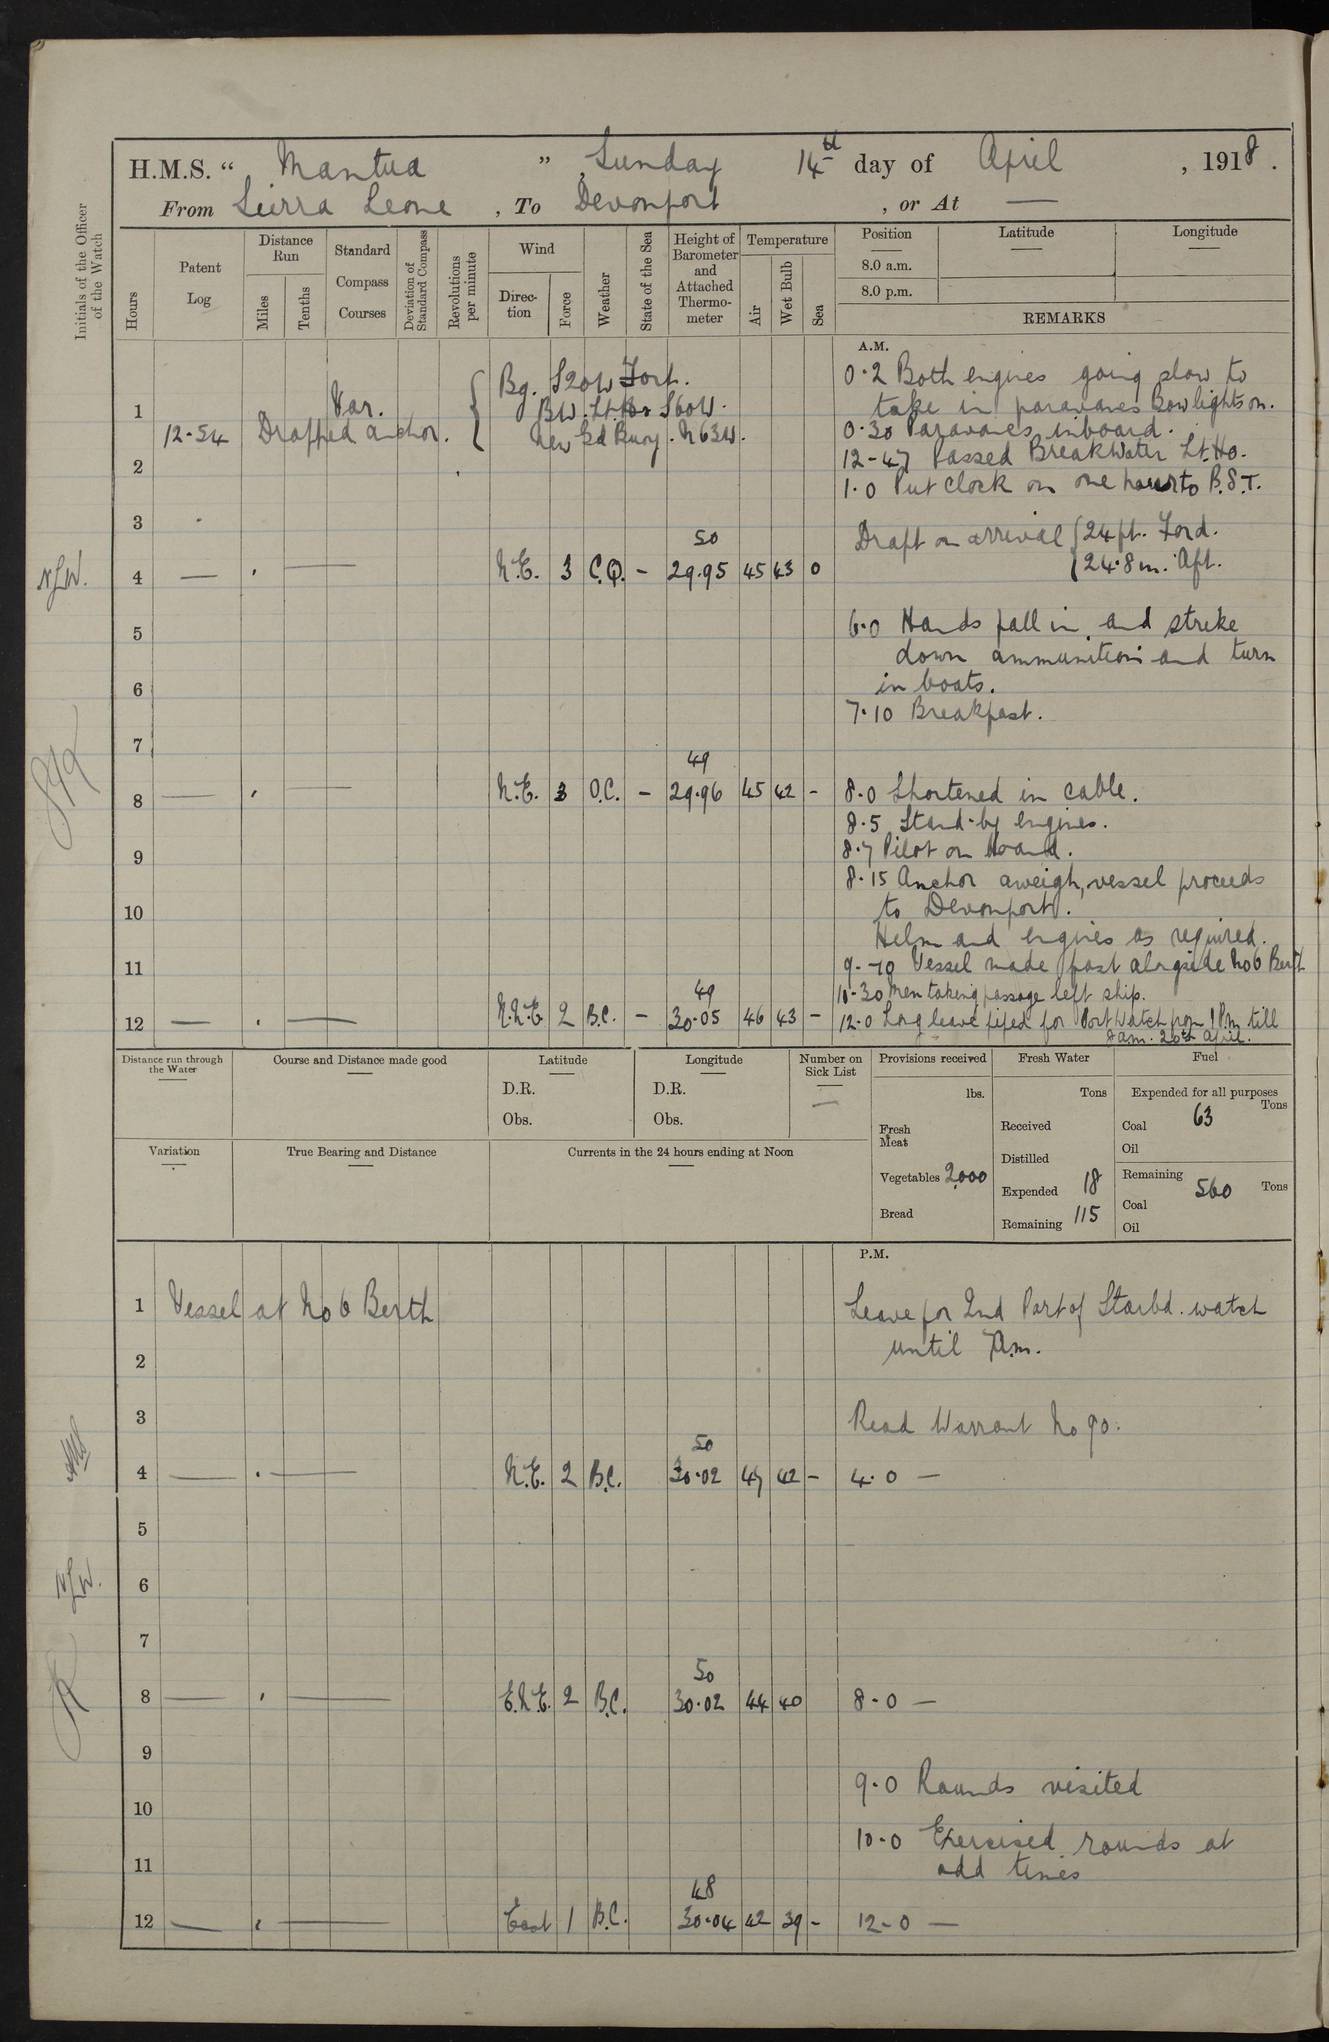 H.M.S. “ Mantua ” Sunday 14th day of April , 1918 .
From Sierra Leone , To Devonport , or At —
Initials of the Officer of the Watch
Hours
Patent Log
Distance Run
Miles
Tenths
Standard Compass Courses
Deviation of Standard Compass
Revolutions per minute
Wind
Direction
Force
Weather
State of the Sea
Height of Barometer and Attached Thermometer
Temperature
Air
Wet Bulb
Sea
Position
8.0 a.m.
8.0 p.m.
Latitude
Longitude
REMARKS
A.M.
0.2 Both engines going slow to
take in paravanes Bow lights on.
1 Var. Bg. S20W Fort.
BW. Lt Ho S60W.
12-54 Dropped anchor. New Gd Buoy. N63W.
0.30 Paravanes inboard.
12-47 Passed BreakWater Lt. Ho.
2
1.0 Put Clock on one hour to B.S.T.
3
Draft on arrival { 24 ft. Ford.
{ 24.8 in. Aft.
50
N.L.W. 4 — . — N.E. 3 C.Q. - 29.95 45 43 0
5
6.0 Hands fall in and strike
down ammunition and turn
6 in boats.
7.10 Breakfast.
7
49
8 — . — N.E. 3 O.C. - 29.96 45 42 - 8.0 Shortened in cable.
8.5 Stand-by engines.
9 8.7 Pilot on board.
8.15 Anchor aweigh, vessel proceeds
10 to Devonport.
Helm and engines as required.
11 9.-10 Vessel made fast alongside No 6 Berth
49
10.30 Men taking passage left ship.
12 — . — N.N.E 2 B.C. - 30.05 46 43 - 12.0 Long leave piped for Port Watch from 1 Pm till
8 am. 20th April.
Distance run through the Water
Course and Distance made good
Latitude
D.R.
Obs.
Longitude
D.R.
Obs.
Number on Sick List
—
Provisions received
lbs.
Fresh Meat
Vegetables 2,000
Bread
Fresh Water
Tons
Received
Distilled
Expended 18
Remaining 115
Fuel
Expended for all purposes
Tons
Coal 63
Oil
Remaining
560 Tons
Coal
Oil
Variation
True Bearing and Distance
Currents in the 24 hours ending at Noon
P.M.
1 Vessel at No 6 Berth Leave for 2nd Part of Starbd. watch
2 until 7am.
3 Read Warrant No 90.
50
4 — . — N.E. 2 B.C. 30.02 47 42 - 4.0 —
5
6
N.L.W.
7
50
8 — . — E.N.E. 2 B.C. 30.02 44 40 8.0 —
9
9.0 Rounds visited
10
10.0 Exercised rounds at
11 odd times
48
12 — . — East 1 B.C. 30.04 42 39 - 12-0 —